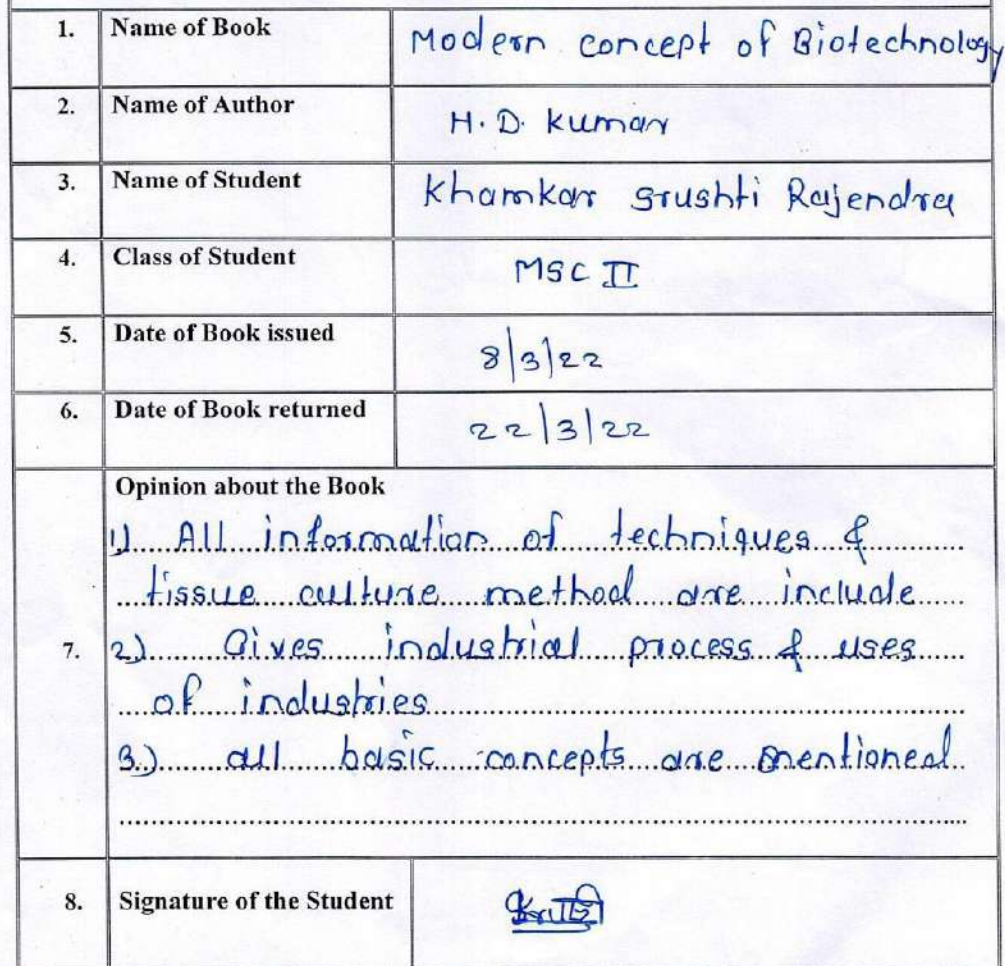 1. Name of Book Modern concept of Biotechnology
2. Name of Author H. D. Kumar
3. Name of Student Khamkar Srushti Rajendra
4. Class of Student MSC II
5. Date of Book issued 8/3/22
6. Date of Book returned 22/3/22
Opinion about the Book
1) All information of techniques &
tissue culture method are include
7. 2) Gives industrial process & uses
of industries
3.) all basic concepts are mentioned.
8. Signature of the Student